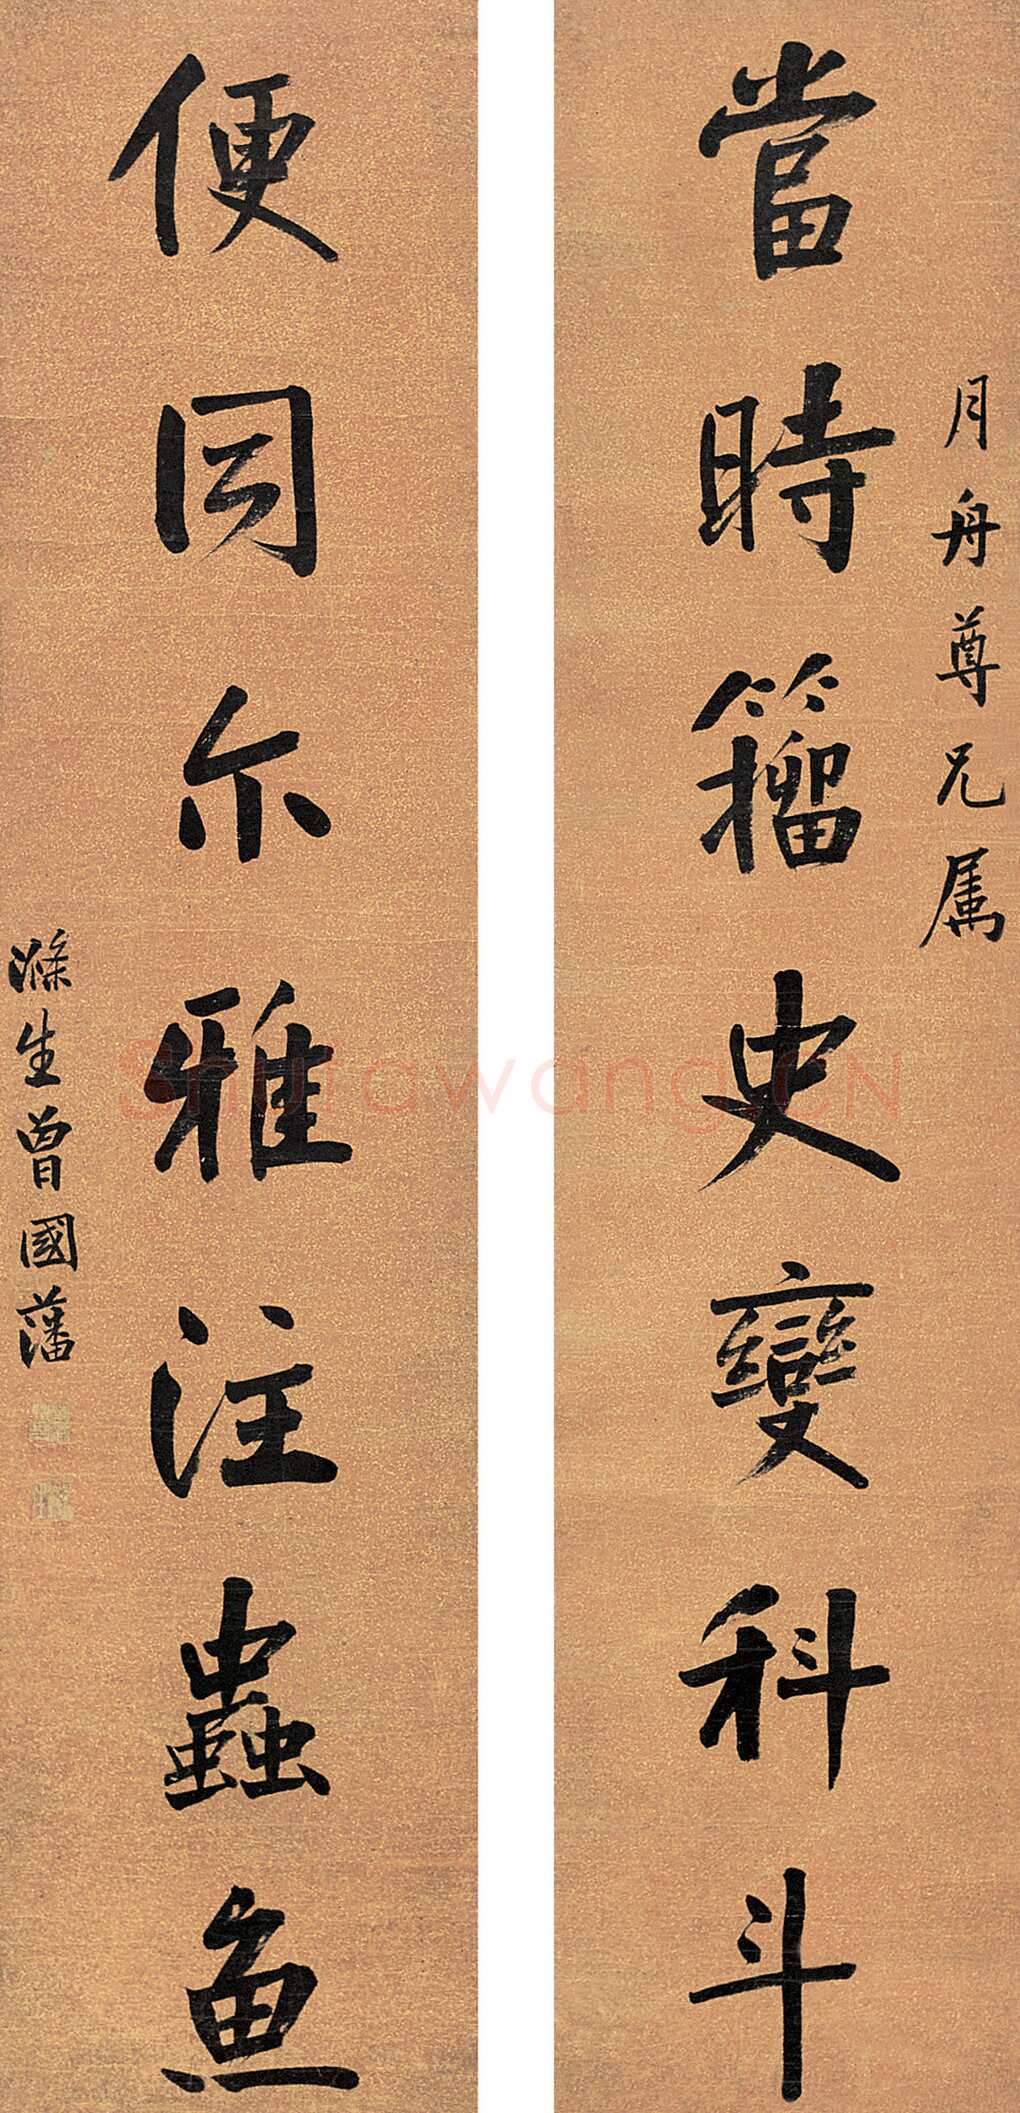 月舟尊兄属
當時籀史變科斗
便同尒雅注蟲魚
滌生曾國藩
Shufawang.CN